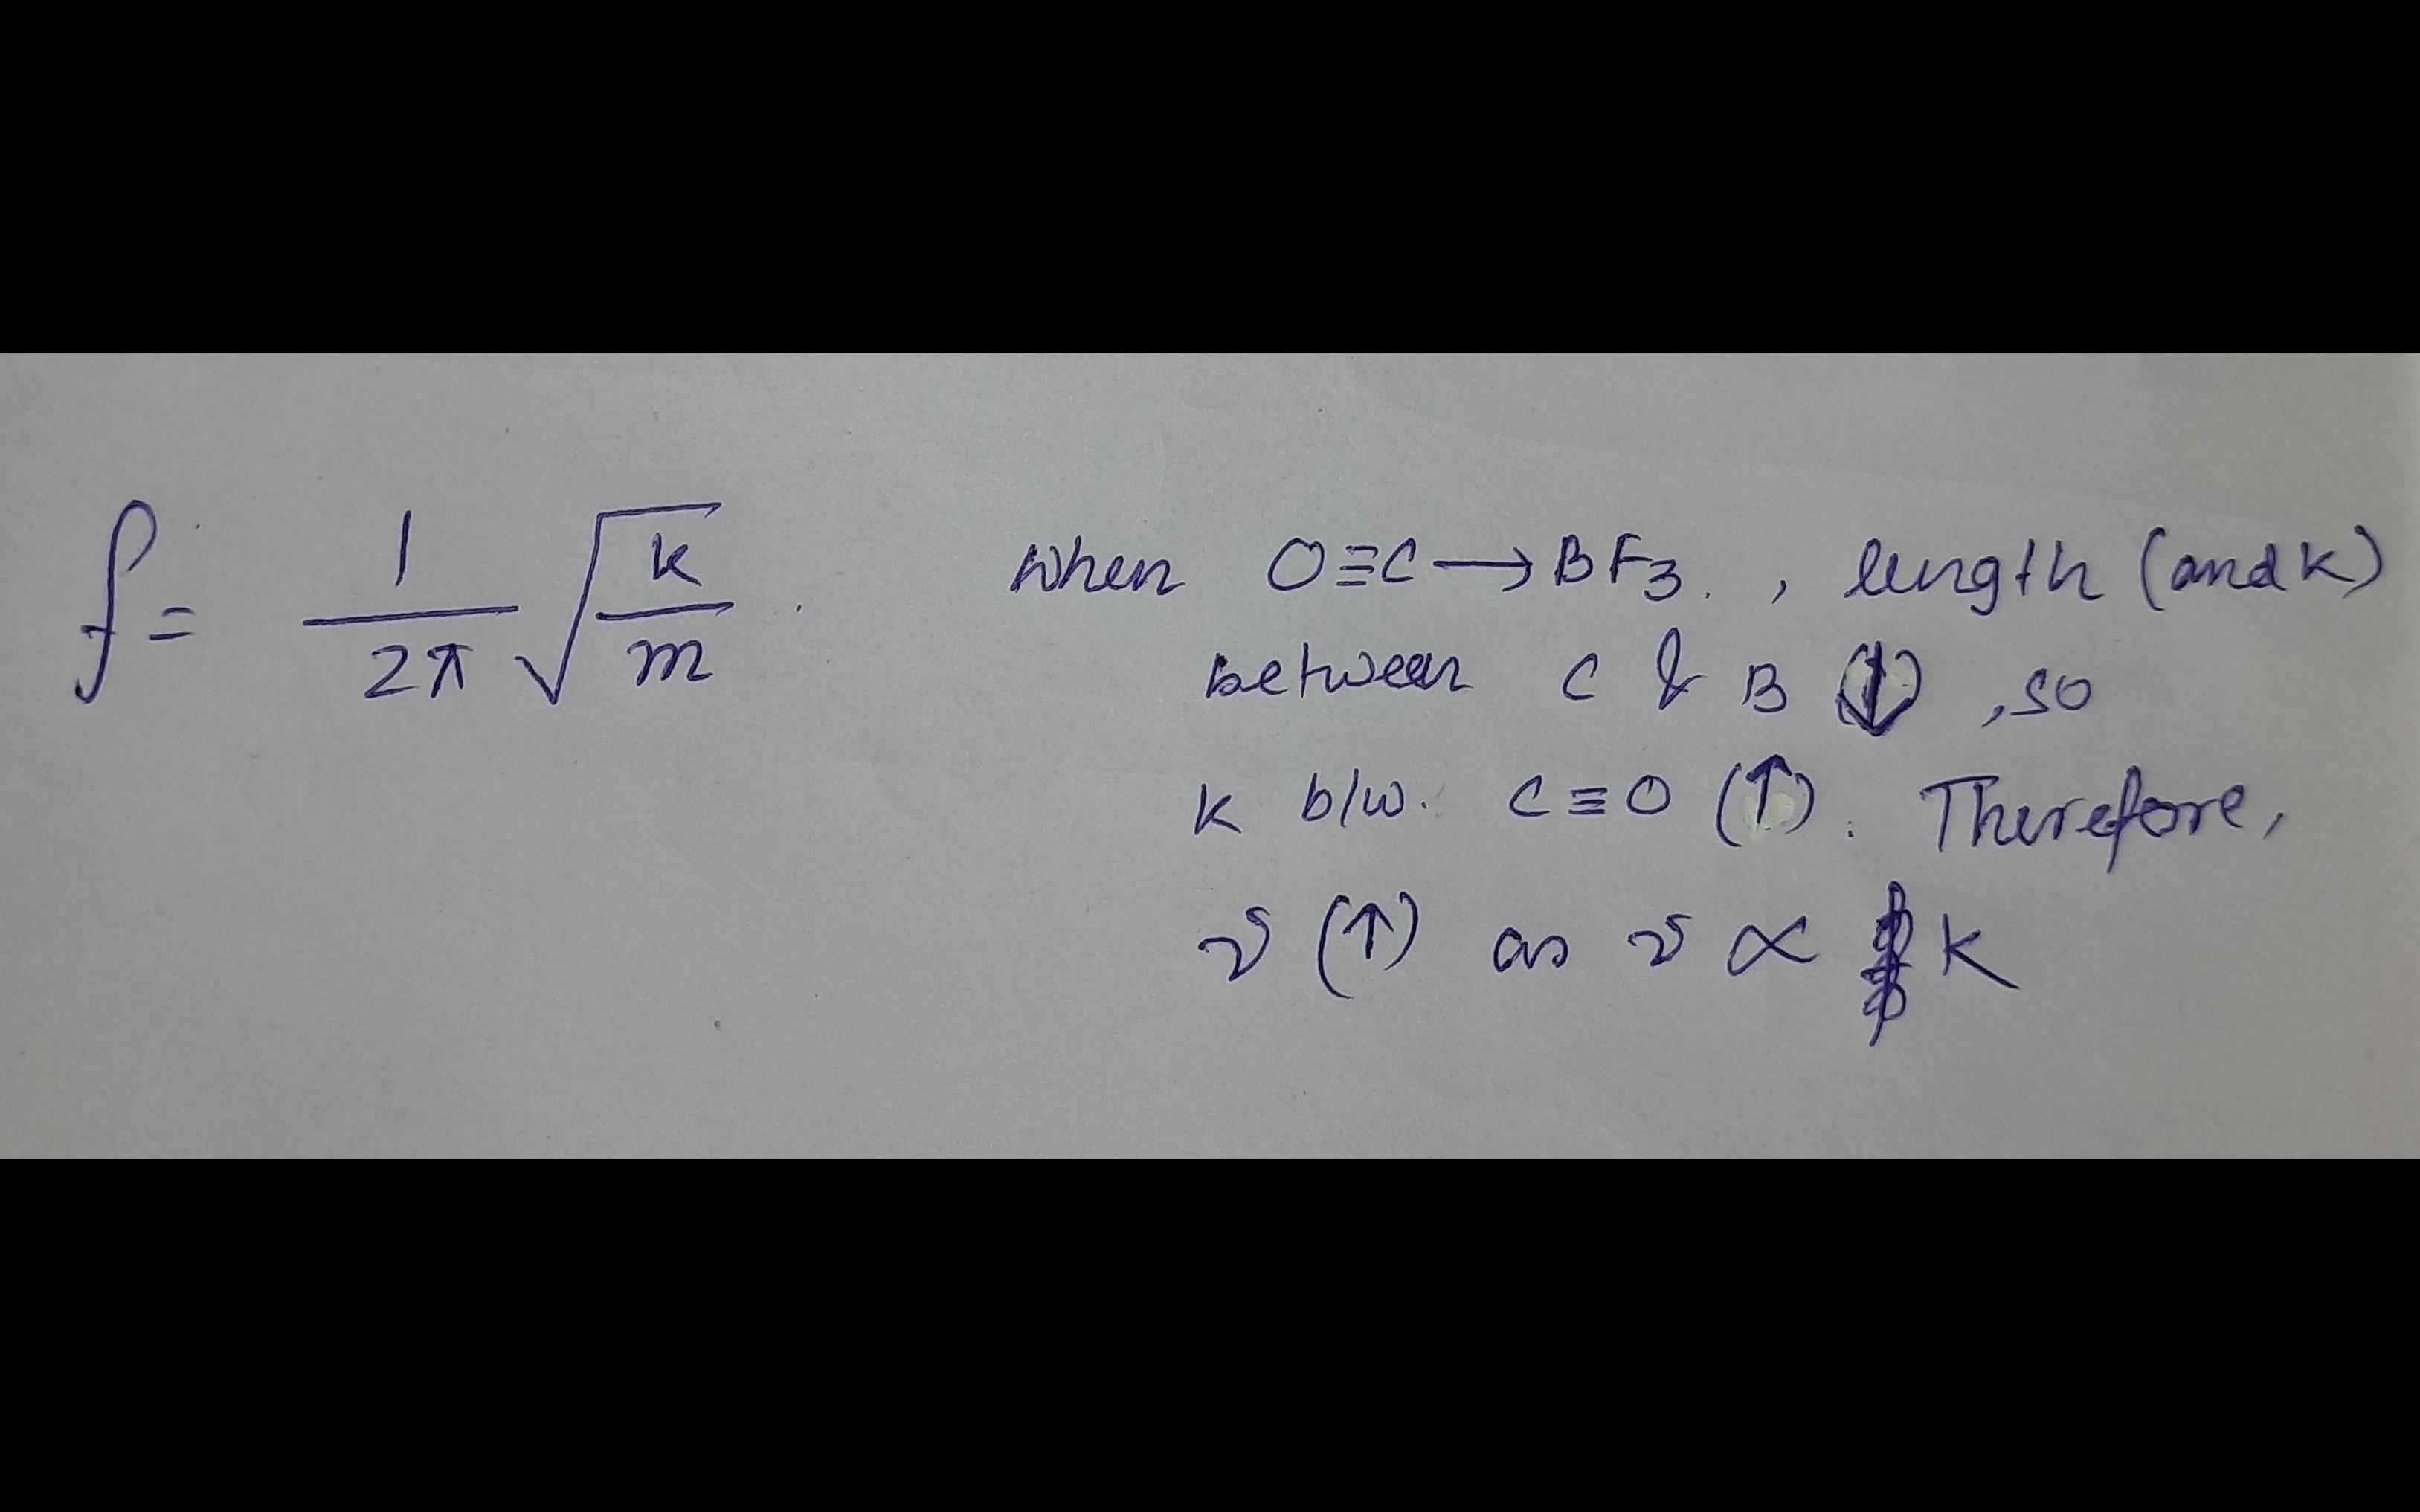 f = 1/2π √k/m
When O≡C⟶BF3. , length (and k)
between C & B (↓) , so
K b/w. C≡O (↑). Therefore,
ν (↑) as ν ∝ K